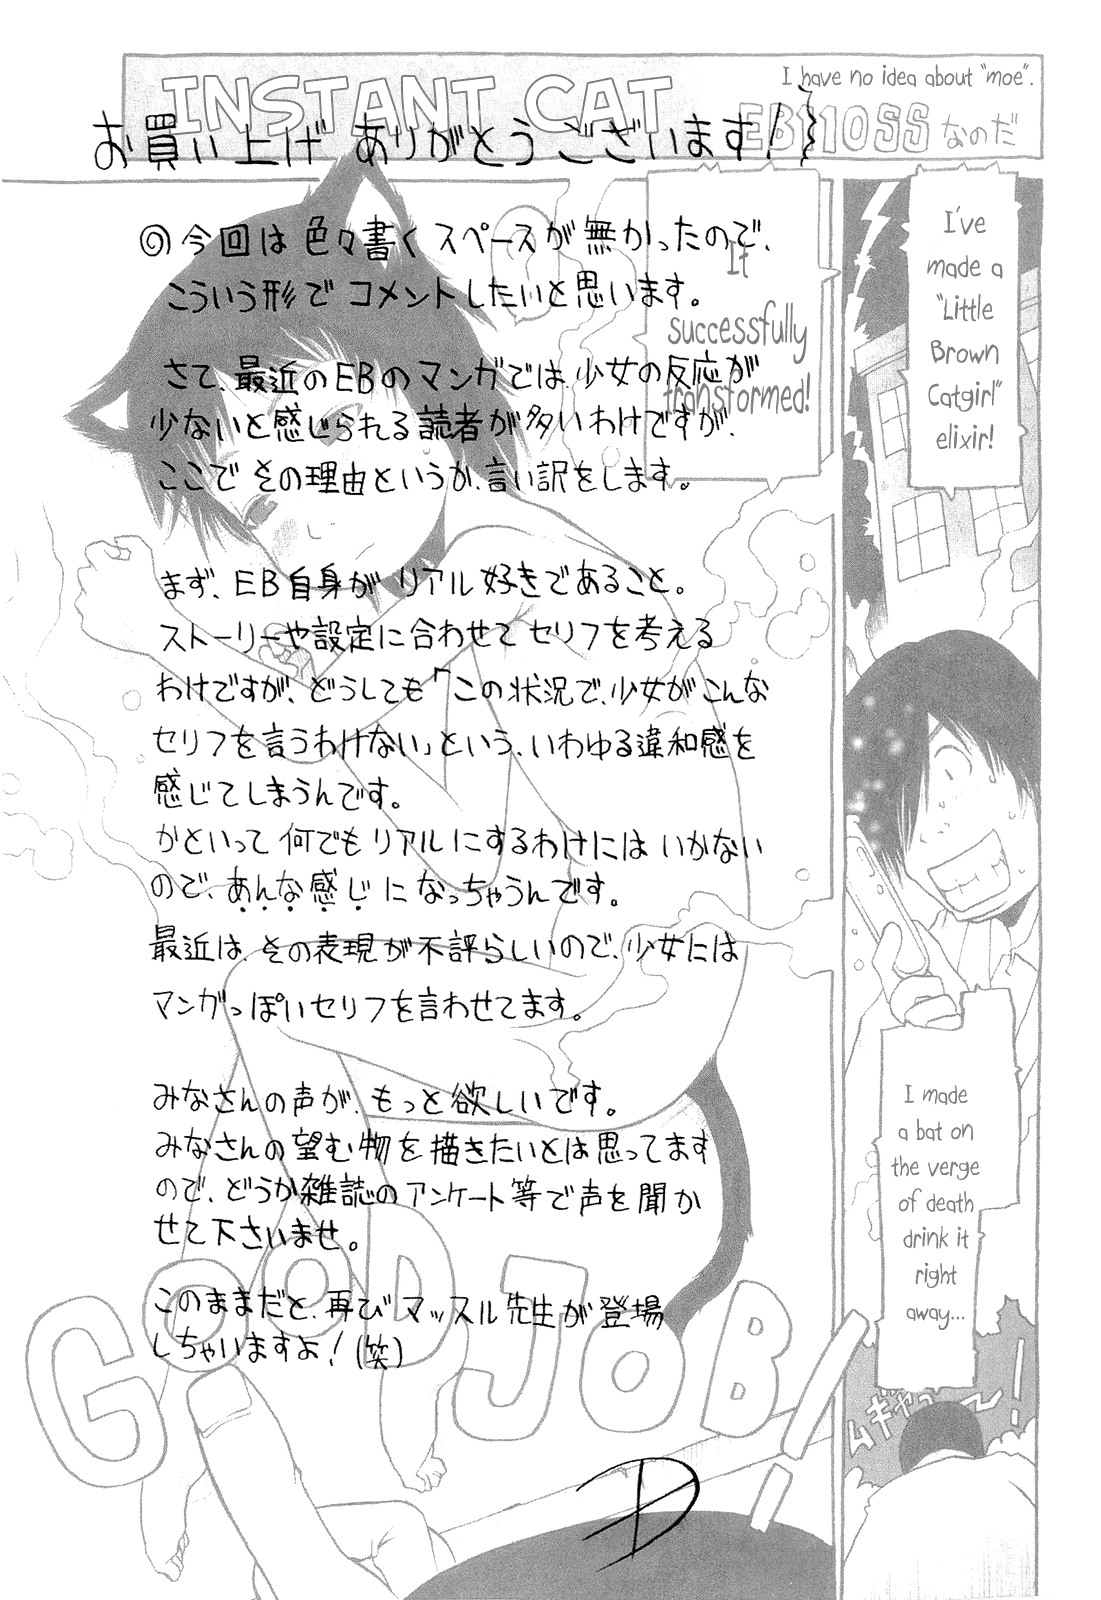 INSTANT CAT
I have no idea about "moe".
EB110SS なのだ
お買い上げ ありがとう ございます!
I've
made a
"Little
Brown
Catgirl"
elixir!
It
successfully
transformed!
今回は 色々書く スペースが 無かったので、
こういう形で コメントしたいと思います。
さて、最近のEBのマンガでは、少女の反応が
少ないと感じられる読者が多いわけですが、
ここで その理由というか、言い訳をします。
まず、EB自身が リアル好きであること。
ストーリーや設定に合わせて セリフを考える
わけですが、どうしても「この状況で、少女がこんな
セリフを言うわけない」という、いわゆる違和感を
感じてしまうんです。
かといって 何でもリアルにするわけには いかない
ので、あんな感じ に なっちゃうんです。
最近は、その表現が不評らしいので、少女には
マンガっぽいセリフを言わせてます。
みなさんの声が、もっと欲しいです。
みなさんの望む物を描きたいとは思ってます
ので、どうか雑誌のアンケート等で声を聞か
せて下さいませ。
このままだと、再びマッスル先生が登場
しちゃいますよ!(笑)
I made
a bat on
the verge
of death
drink it
right
away...
GOOD JOB!!